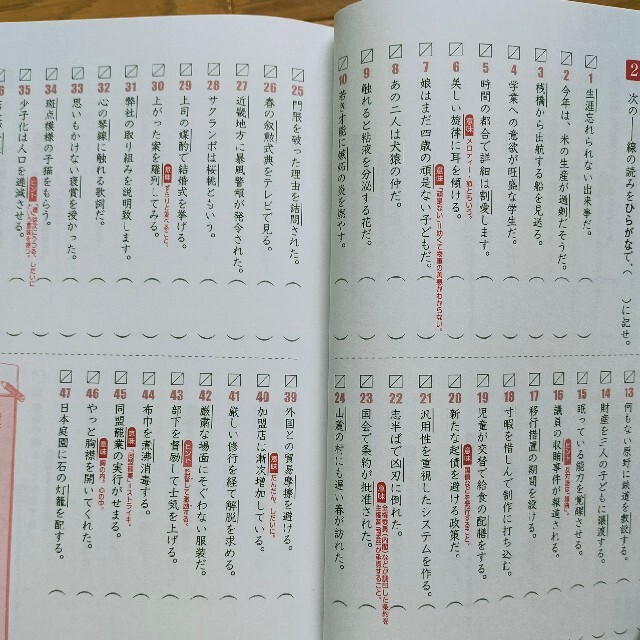 2 次の――線の読みをひらがなで、( )に記せ。
1 生涯忘れられない出来事だ。
2 今年は、米の生産が過剰だそうだ。
3 桟橋から出航する船を見送る。
4 学業への意欲が旺盛な学生だ。
5 時間の都合で詳細は割愛します。
6 美しい旋律に耳を傾ける。
意味 メロディー・節ともいう。
7 娘はまだ四歳の頑是ない子どもだ。
8 あの二人は犬猿の仲だ。
9 触れると粘液を分泌する花だ。
10 若き才能に嫉妬の炎を燃やす。
13 何もない原野に鉄道を敷設する。
14 財産を三人の子どもに譲渡する。
15 眠っている能力を覚醒させる。
16 議員の収賄事件が報道される。
17 移行措置の期間を設ける。
18 寸暇を惜しんで制作に打ち込む。
19 児童が交替で給食の配膳をする。
20 新たな起債を避ける政策だ。
21 汎用性を重視したシステムを作る。
22 志半ばで凶刃に倒れた。
23 国会で条約が批准された。
24 山麓の村にも遅い春が訪れた。
25 門限を破った理由を詰問された。
26 春の叙勲式典をテレビで見る。
27 近畿地方に暴風警報が発令された。
28 サクランボは桜桃ともいう。
29 上司の媒酌で結婚式を挙げる。
30 上がった案を羅列してみる。
意味 ずらりと並べること。
31 弊社の取り組みを説明致します。
32 心の琴線に触れる歌詞だ。
33 思いもかけない褒賞を授かった。
34 斑点模様の子猫をもらう。
35 少子化は人口を逓減させる。
39 外国との貿易摩擦を避ける。
40 加盟店は漸次増加している。
意味 だんだん。しだいに。
41 厳しい修行を経て解脱を求める。
42 厳粛な場面にそぐわない服装だ。
43 部下を督励して士気を上げる。
ヒント 監督して激励する。
44 布巾を煮沸消毒する。
45 同盟罷業の実行がせまる。
意味 「同盟罷業」＝ストライキ。
46 やっと胸襟を開いてくれた。
意味 胸の内。心の中。
47 日本庭園に石の灯籠を配する。